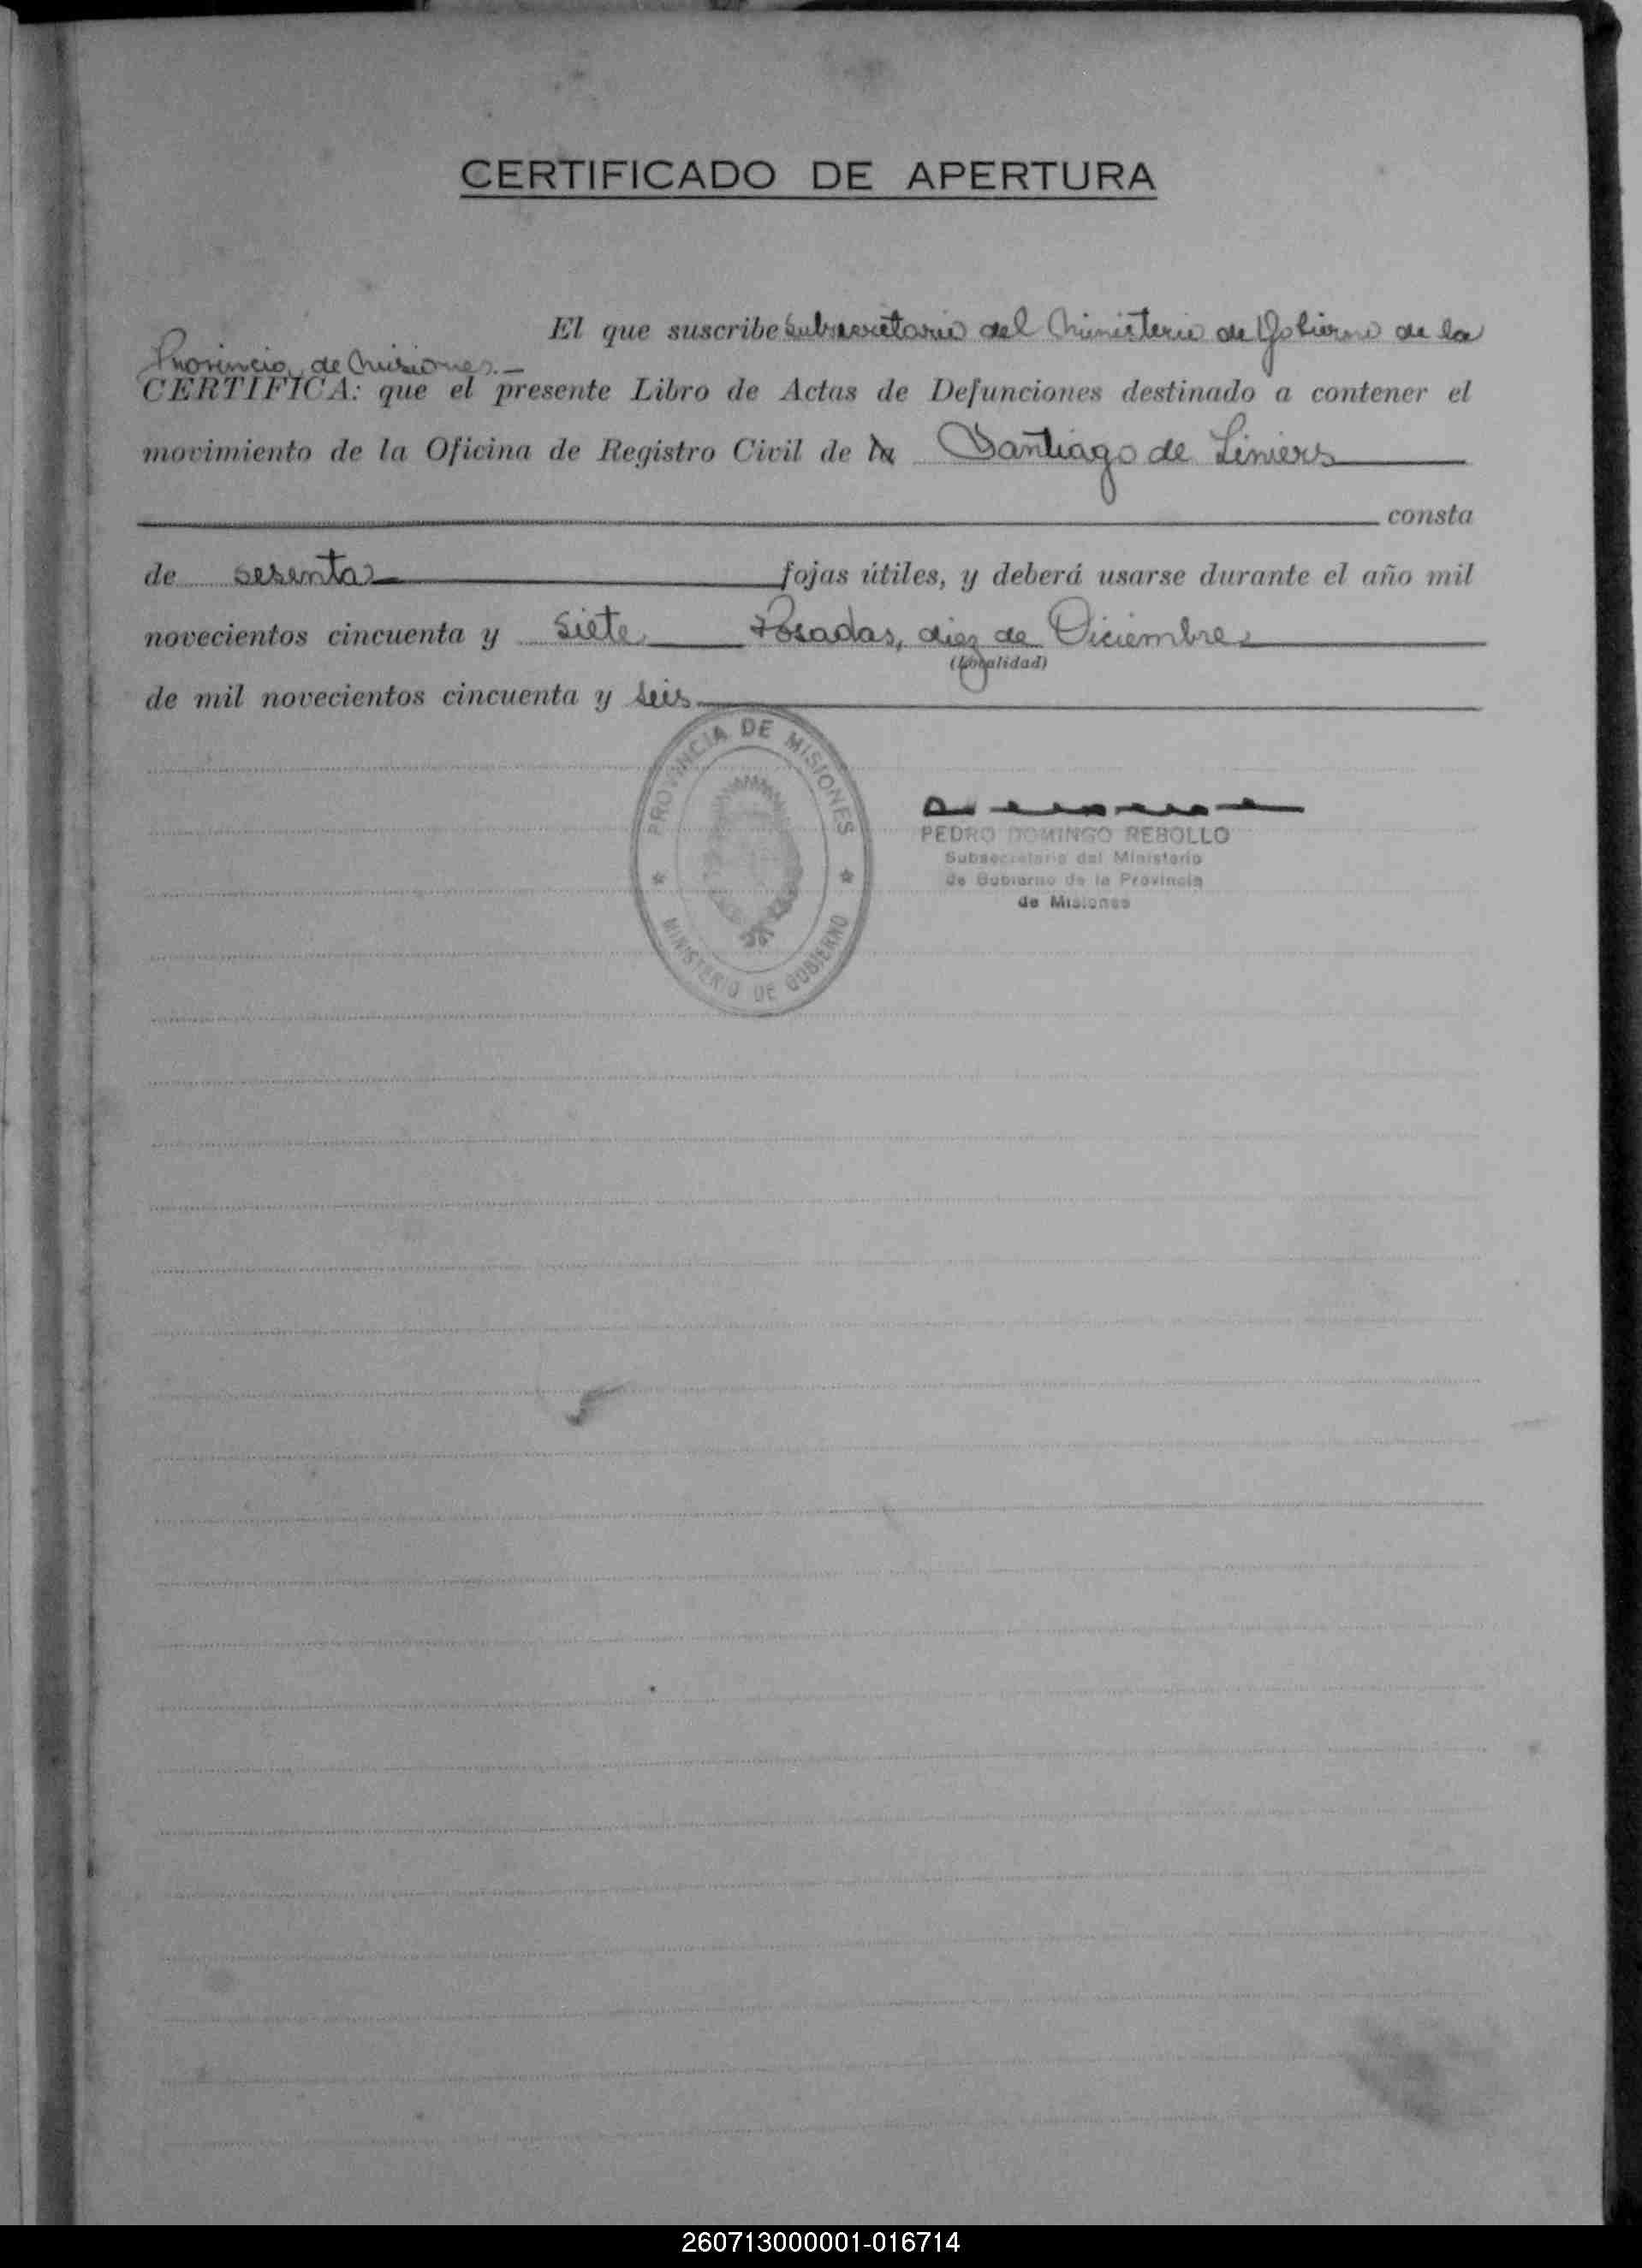 CERTIFICADO DE APERTURA
El que suscribe Subsecretario del Ministerio de Gobierno de la
Provincia de Misiones.-
CERTIFICA: que el presente Libro de Actas de Defunciones destinado a contener el
movimiento de la Oficina de Registro Civil de Santiago de Liniers
consta
de sesenta fojas útiles, y deberá usarse durante el año mil
novecientos cincuenta y siete Posadas, diez de Diciembre
(Localidad)
de mil novecientos cincuenta y seis
PROVINCIA DE MISIONES
MINISTERIO DE GOBIERNO
PEDRO DOMINGO REBOLLO
Subsecretario del Ministerio
de Gobierno de la Provincia
de Misiones
260713000001-016714